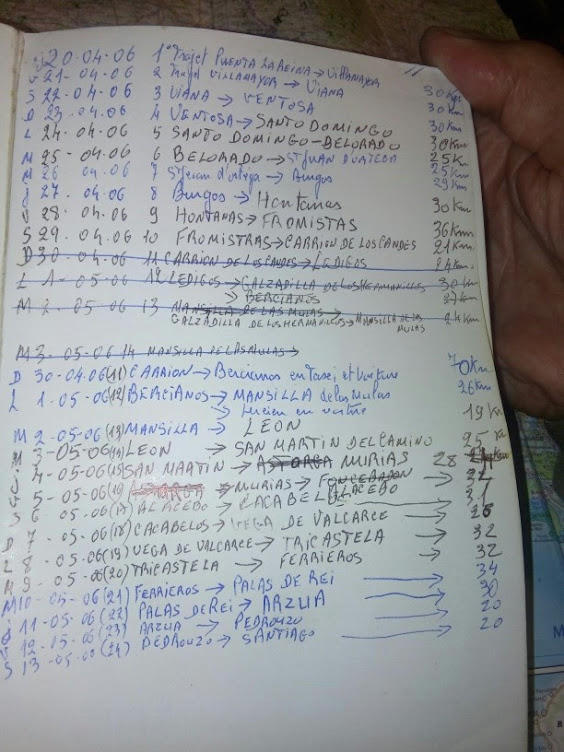 J 20-04-06 1° Trajet PUENTA LA REINA → VILLAMAYOR
V 21-04-06 2 VILLAMAYOR → VIANA 30 Km
S 22-04-06 3 VIANA → VENTOSA 30 Km
D 23-04-06 4 VENTOSA → SANTO DOMINGO 30 Km
L 24-04-06 5 SANTO DOMINGO-BELORADO 30 Km
M 25-04-06 6 BELORADO → 25 Km
M 26 04-06 7 → Burgos 25 Km
J 27-04-06 8 Burgos → Hontanas 29 Km
V 28-04-06 9 HONTANAS → FROMISTAS 30 Km
S 29-04-06 10 FROMISTRAS → CARRION DE LOS CANDES 36 Km
D 30-04-06 11 CARRION DE LOS CANDES → LEDIGOS 21 Km
L 1-05-06 12 LEDIGOS → CALZADILLA DE LOS HERMANILLOS 30 Km
→ BERCIANOS
M 2-05-06 13 MANSILLA DE LAS MULAS
GALZADILLA DE LOS HERMANILLOS → MANSILLA DE LAS MULAS 24 Km
M 3-05-06 14 MANSILLA DE LAS MULAS →
D 30-04-06 (11) CARRION → Bercianos en taxi et voiture 70 Km
L 1-05-06 (12) BERCIANOS → MANSILLA de las Mulas 26 Km
→ Lucien en voiture
M 2-05-06 (13) MANSILLA → LEON 19 Km
M 3-05-06 (14) LEON → SAN MARTIN DEL CAMINO 25
J 4-05-06 (15) SAN MARTIN → ASTORGA MURIAS 28
V 5-05-06 (16) MURIAS → FONCEBADON ALACEBO
S 6-05-06 (17) ALACEBO → CACABELOS 31
D 7-05-06 (18) CACABELOS → VEGA DE VALCARCE → 26
L 8-05-06 (19) VEGA DE VALCARCE → TRICASTELA → 32
M 9-05-06 (20) TRICASTELA → FERRIEROS 32
M 10-05-06 (21) FERRIEROS → PALAS DE REI → 34
J 11-05-06 (22) PALAS DE REI → ARZUA → 30
V 12-05-06 (23) ARZUA → PEDROUZO → 20
S 13-05-06 (24) PEDROUZO → SANTIAGO → 20